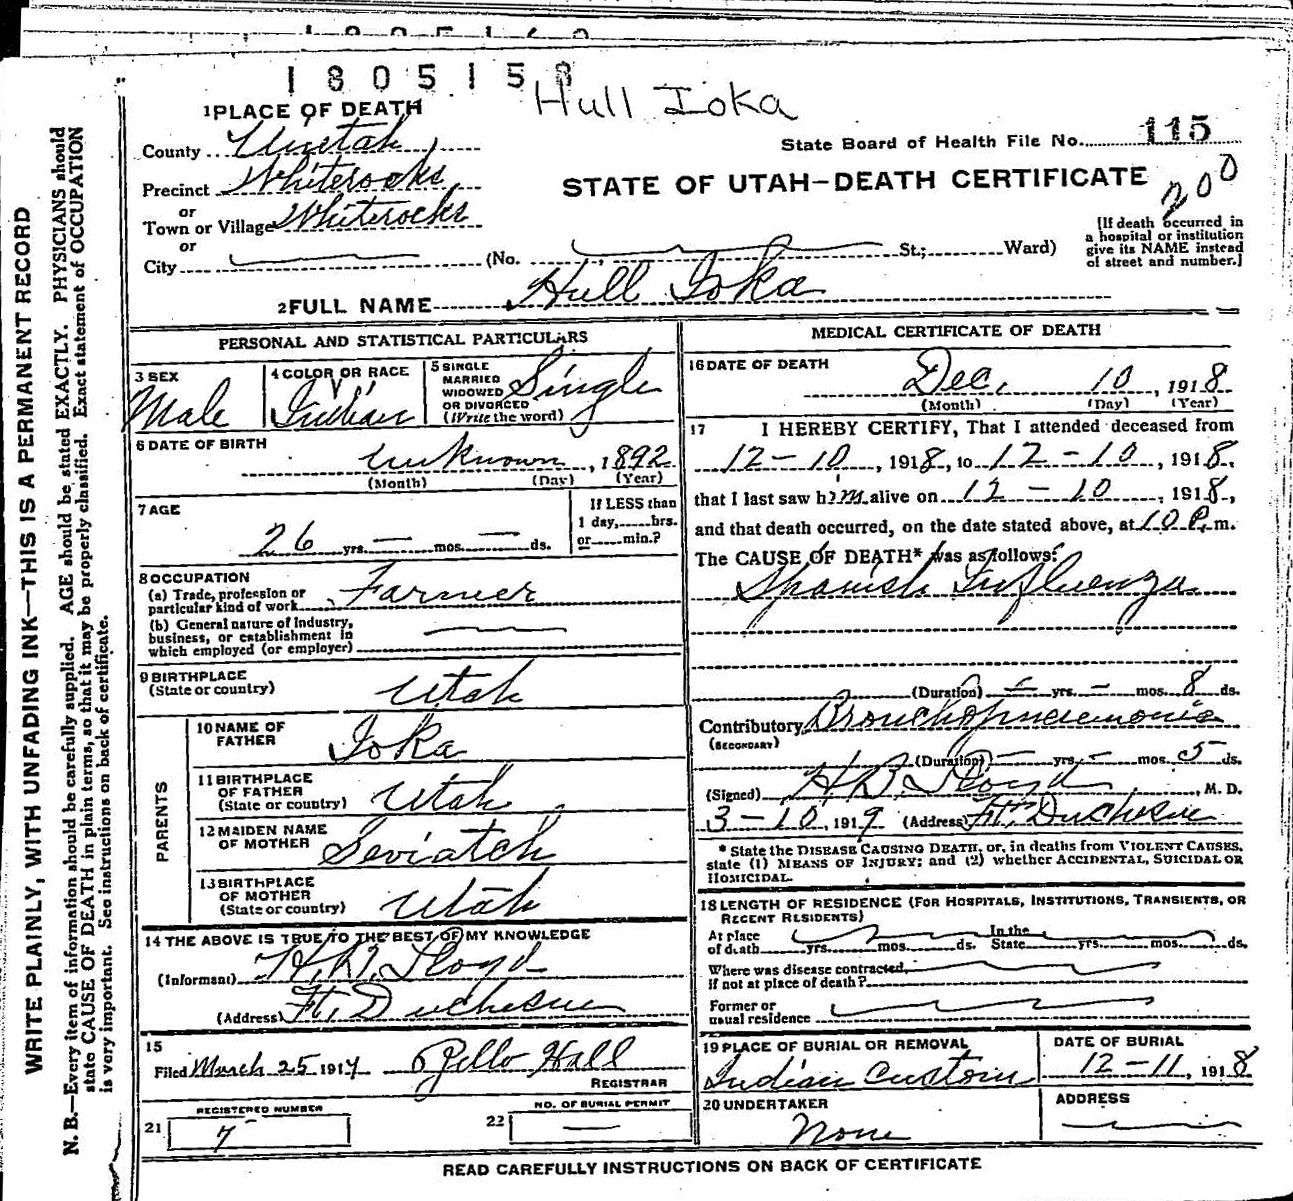 1805158
Hull Ioka
1 PLACE OF DEATH
State Board of Health File No. 115
County Uintah
STATE OF UTAH—DEATH CERTIFICATE
200
Precinct Whiterocks
or
Town or Village Whiterocks
or
City (No. St.; Ward)
[If death occurred in
a hospital or institution
give its NAME instead
of street and number.]
2 FULL NAME Hull Ioka
PERSONAL AND STATISTICAL PARTICULARS
3 SEX
Male
4 COLOR OR RACE
Indian
5 SINGLE
MARRIED
WIDOWED
OR DIVORCED
(Write the word)
Single
6 DATE OF BIRTH
Unknown, 1892
(Month) (Day) (Year)
7 AGE
26 yrs. — mos. — ds.
If LESS than
1 day, hrs.
or min.?
8 OCCUPATION
(a) Trade, profession or
particular kind of work Farmer
(b) General nature of industry,
business, or establishment in
which employed (or employer)
9 BIRTHPLACE
(State or country) Utah
PARENTS
10 NAME OF
FATHER Ioka
11 BIRTHPLACE
OF FATHER
(State or country) Utah
12 MAIDEN NAME
OF MOTHER Seviatch
13 BIRTHPLACE
OF MOTHER
(State or country) Utah
14 THE ABOVE IS TRUE TO THE BEST OF MY KNOWLEDGE
(Informant) Lloyd
(Address) Ft. Duchesne
15
Filed March 25 191 Hall
REGISTRAR
REGISTERED NUMBER
21 7
NO. OF BURIAL PERMIT
22 —
MEDICAL CERTIFICATE OF DEATH
16 DATE OF DEATH
Dec. 10, 1918
(Month) (Day) (Year)
17 I HEREBY CERTIFY, That I attended deceased from
12-10, 1918, to 12-10, 1918,
that I last saw him alive on 12-10, 1918,
and that death occurred, on the date stated above, at 10 P. m.
The CAUSE OF DEATH* was as follows:
Spanish Influenza
(Duration) — yrs. — mos. 8 ds.
Contributory Bronchopneumonia
(SECONDARY)
(Duration) — yrs. — mos. 5 ds.
(Signed) H. B. Lloyd, M. D.
3-10, 1919 (Address) Ft. Duchesne
* State the DISEASE CAUSING DEATH, or, in deaths from VIOLENT CAUSES,
state (1) MEANS OF INJURY; and (2) whether ACCIDENTAL, SUICIDAL OR
HOMICIDAL.
18 LENGTH OF RESIDENCE (FOR HOSPITALS, INSTITUTIONS, TRANSIENTS, OR
RECENT RESIDENTS)
At place
of death yrs. mos. ds.
In the
State yrs. mos. ds.
Where was disease contracted,
if not at place of death?
Former or
usual residence
19 PLACE OF BURIAL OR REMOVAL
Indian Custom
DATE OF BURIAL
12-11, 1918
20 UNDERTAKER
None
ADDRESS
READ CAREFULLY INSTRUCTIONS ON BACK OF CERTIFICATE
WRITE PLAINLY, WITH UNFADING INK—THIS IS A PERMANENT RECORD
N. B.—Every item of information should be carefully supplied. AGE should be stated EXACTLY. PHYSICIANS should
state CAUSE OF DEATH in plain terms, so that it may be properly classified. Exact statement of OCCUPATION
is very important. See instructions on back of certificate.